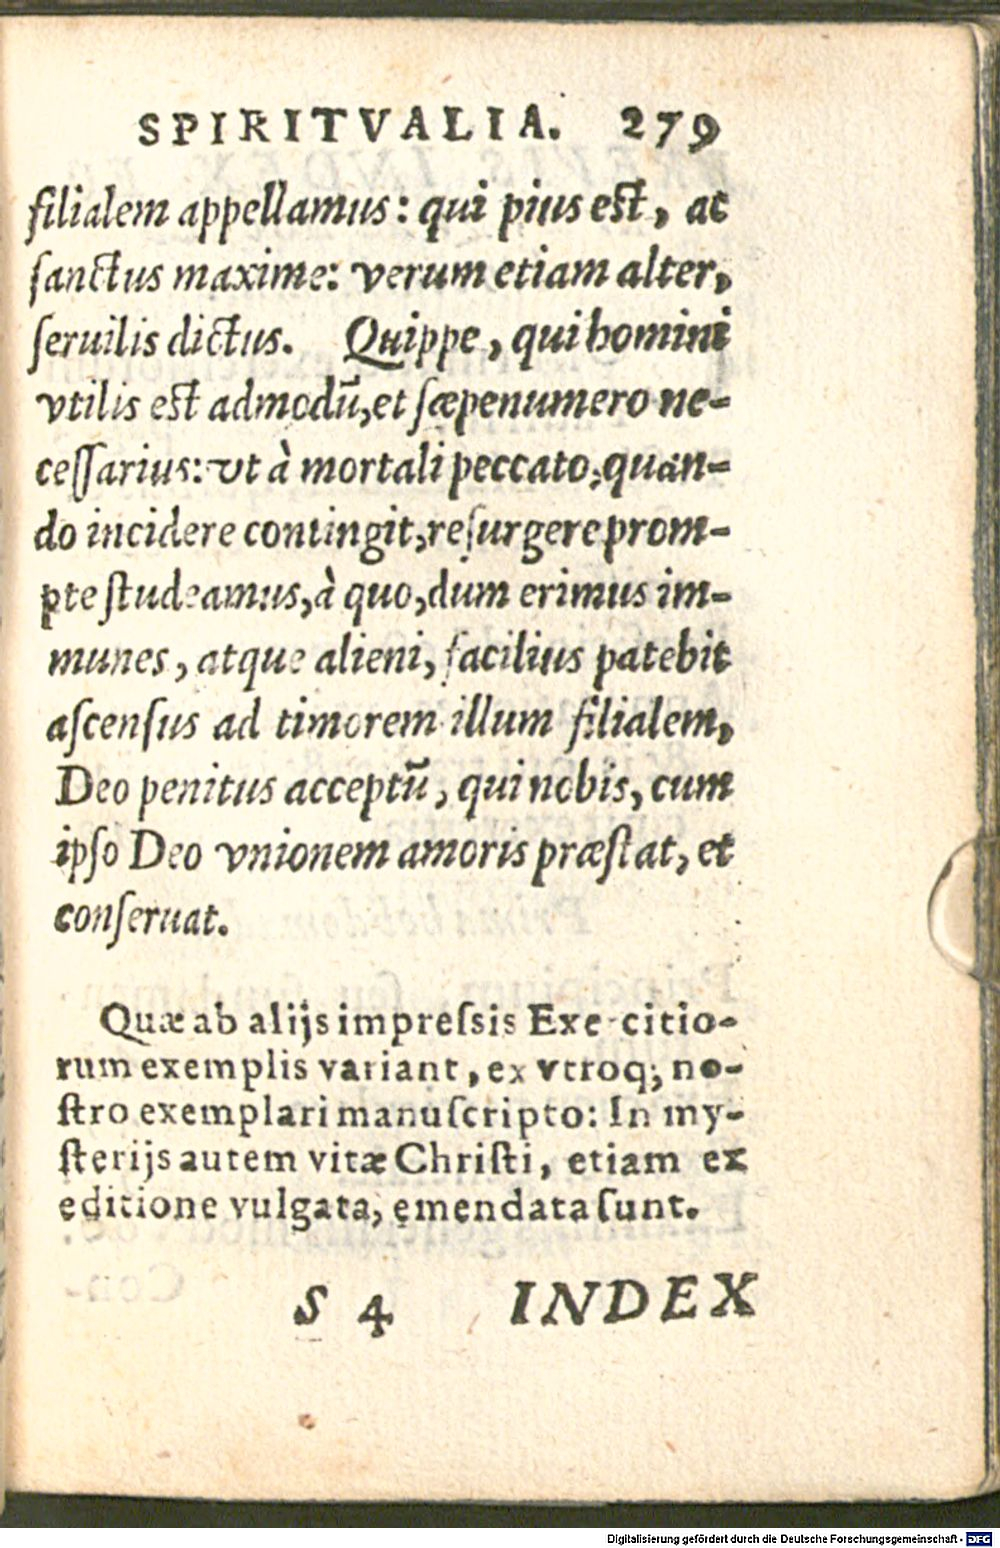 SPIRITVALIA. 279
filialem appellamus: qui pius est, ac
ſanctus maxime: verum etiam alter,
ſeruilis dictus. Quippe, qui homini
vtilis est admodū, et ſæpenumero ne-
ceſſarius: vt à mortali peccato, quan-
do incidere contingit, reſurgere prom-
pte ſtudeamus, à quo, dum erimus im-
munes, atque alieni, facilius patebit
aſcenſus ad timorem illum filialem,
Deo penitus acceptū, qui nobis, cum
ipſo Deo vnionem amoris præſtat, et
conſeruat.
Quæ ab alijs impreſsis Exercitio-
rum exemplis variant, ex vtroq; no-
ſtro exemplari manuſcripto: In my-
ſterijs autem vitæ Chriſti, etiam ex
editione vulgata, emendata ſunt.
S 4 INDEX
Digitalisierung gefördert durch die Deutsche Forschungsgemeinschaft - DFG